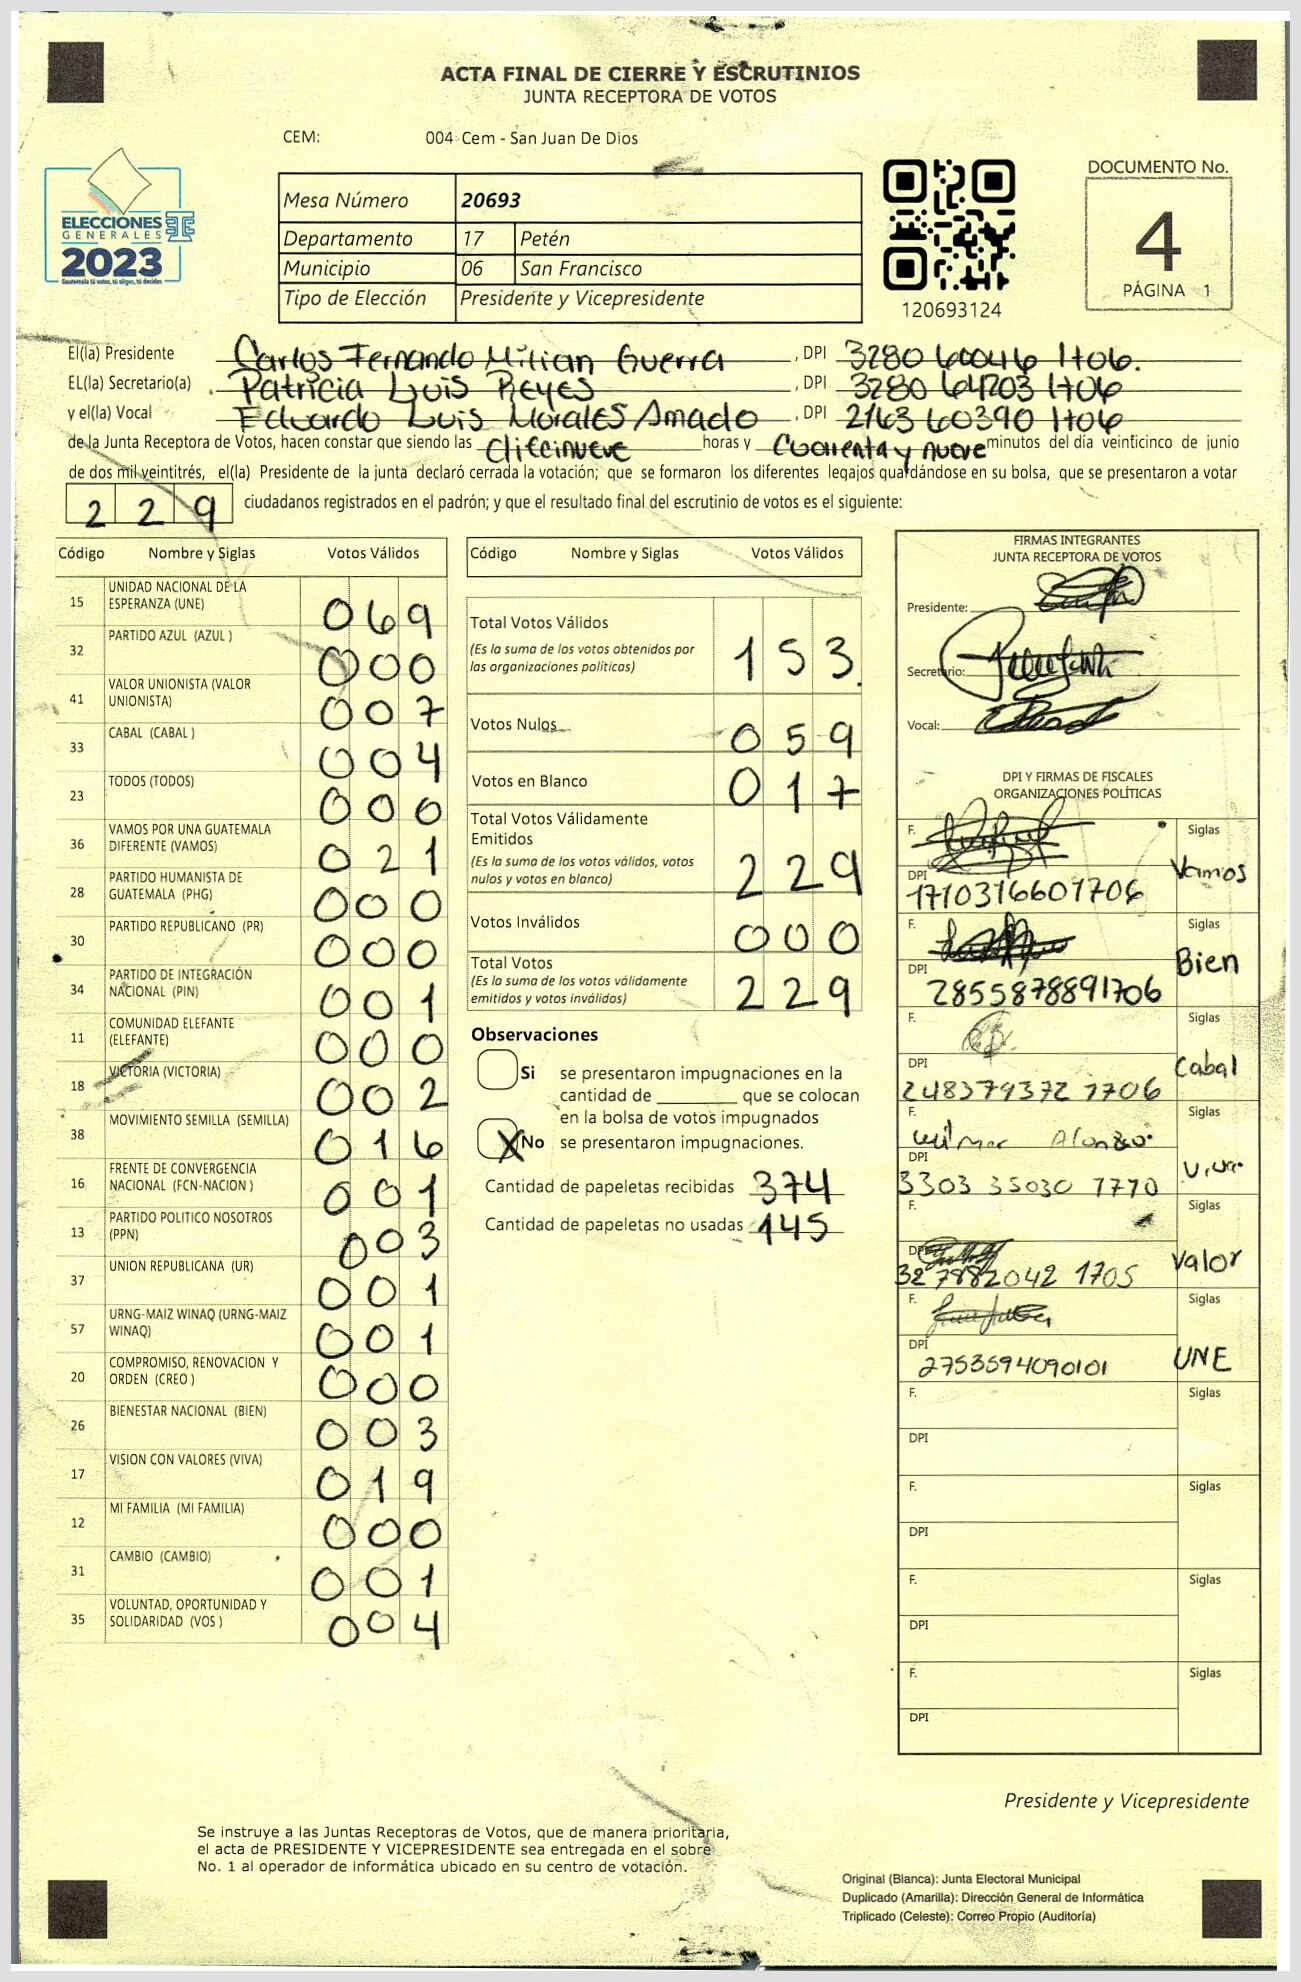 ACTA FINAL DE CIERRE Y ESCRUTINIOS
JUNTA RECEPTORA DE VOTOS
CEM: 004 Cem - San Juan De Dios
ELECCIONES
GENERALES
2023
Guatemala tú votas, tú eliges, tú decides
Mesa Número 20693
Departamento 17 Petén
Municipio 06 San Francisco
Tipo de Elección Presidente y Vicepresidente
120693124
DOCUMENTO No.
4
PÁGINA 1
El(la) Presidente Carlos Fernando Milian Guerra, DPI 3280 60046 1706.
EL(la) Secretario(a) Patricia Luis Reyes, DPI 3280 64703 1706
y el(la) Vocal Eduardo Luis Morales Amado, DPI 2163 60390 1706
de la Junta Receptora de Votos, hacen constar que siendo las diecinueve horas y cuarenta y nueve minutos del día veinticinco de junio
de dos mil veintitrés, el(la) Presidente de la junta declaró cerrada la votación; que se formaron los diferentes legajos guardándose en su bolsa, que se presentaron a votar
229 ciudadanos registrados en el padrón; y que el resultado final del escrutinio de votos es el siguiente:
Código Nombre y Siglas Votos Válidos
15 UNIDAD NACIONAL DE LA ESPERANZA (UNE) 069
32 PARTIDO AZUL (AZUL ) 000
41 VALOR UNIONISTA (VALOR UNIONISTA) 007
33 CABAL (CABAL ) 004
23 TODOS (TODOS) 000
36 VAMOS POR UNA GUATEMALA DIFERENTE (VAMOS) 021
28 PARTIDO HUMANISTA DE GUATEMALA (PHG) 000
30 PARTIDO REPUBLICANO (PR) 000
34 PARTIDO DE INTEGRACIÓN NACIONAL (PIN) 001
11 COMUNIDAD ELEFANTE (ELEFANTE) 000
18 VICTORIA (VICTORIA) 002
38 MOVIMIENTO SEMILLA (SEMILLA) 016
16 FRENTE DE CONVERGENCIA NACIONAL (FCN-NACION ) 001
13 PARTIDO POLITICO NOSOTROS (PPN) 003
37 UNION REPUBLICANA (UR) 001
57 URNG-MAIZ WINAQ (URNG-MAIZ WINAQ) 001
20 COMPROMISO, RENOVACION Y ORDEN (CREO ) 000
26 BIENESTAR NACIONAL (BIEN) 003
17 VISION CON VALORES (VIVA) 019
12 MI FAMILIA (MI FAMILIA) 000
31 CAMBIO (CAMBIO) 001
35 VOLUNTAD, OPORTUNIDAD Y SOLIDARIDAD (VOS ) 004
Código Nombre y Siglas Votos Válidos
Total Votos Válidos 153
(Es la suma de los votos obtenidos por
las organizaciones políticas)
Votos Nulos 059
Votos en Blanco 017
Total Votos Válidamente
Emitidos 229
(Es la suma de los votos válidos, votos
nulos y votos en blanco)
Votos Inválidos 000
Total Votos 229
(Es la suma de los votos válidamente
emitidos y votos inválidos)
Observaciones
Si se presentaron impugnaciones en la
cantidad de ________ que se colocan
en la bolsa de votos impugnados
X No se presentaron impugnaciones.
Cantidad de papeletas recibidas 374
Cantidad de papeletas no usadas 145
FIRMAS INTEGRANTES
JUNTA RECEPTORA DE VOTOS
Presidente:
Secretario:
Vocal:
DPI Y FIRMAS DE FISCALES
ORGANIZACIONES POLÍTICAS
F. Siglas Vamos
DPI 1710316601706
F. Siglas Bien
DPI 2855878891706
F. Siglas Cabal
DPI 248379372 1706
F. Wilmer Alonzo Siglas Viva
DPI 3303 35030 1770
F. Siglas Valor
DPI 327882042 1705
F. Siglas UNE
DPI 2753594090101
F. Siglas
DPI
F. Siglas
DPI
F. Siglas
DPI
F. Siglas
DPI
Presidente y Vicepresidente
Se instruye a las Juntas Receptoras de Votos, que de manera prioritaria,
el acta de PRESIDENTE Y VICEPRESIDENTE sea entregada en el sobre
No. 1 al operador de informática ubicado en su centro de votación.
Original (Blanca): Junta Electoral Municipal
Duplicado (Amarilla): Dirección General de Informática
Triplicado (Celeste): Correo Propio (Auditoría)